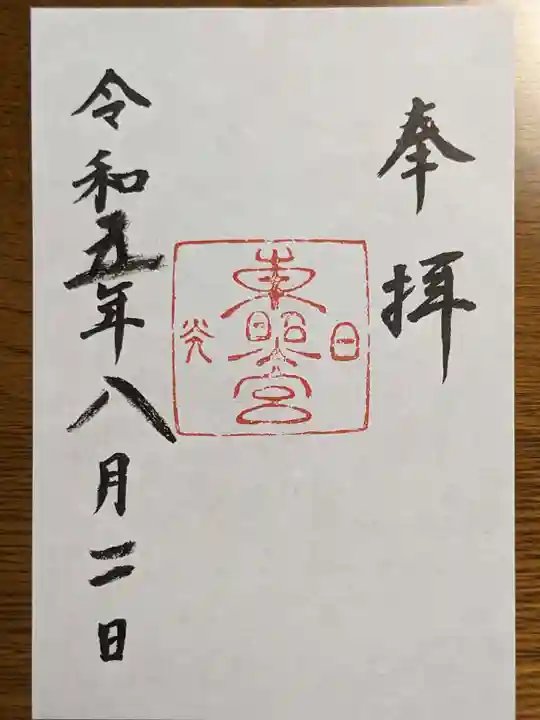 奉拝
日光
東照宮
令和五年八月二日